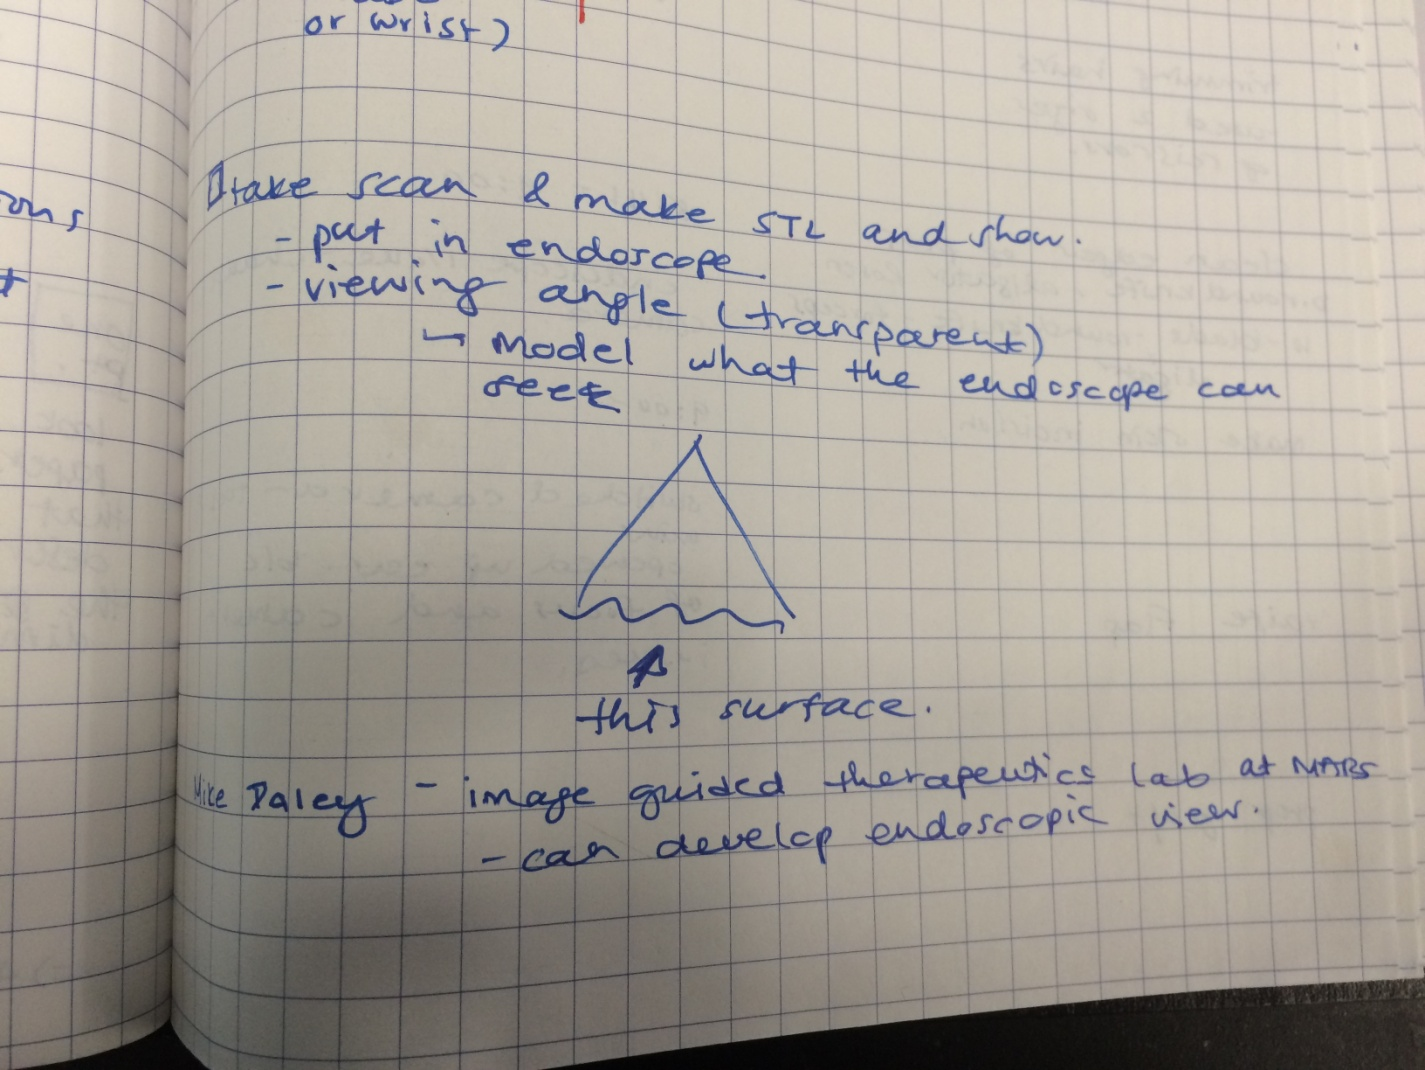 or wrist)
ons
take scan & make STL and show.
- put in endoscope.
- viewing angle (transparent)
↳ Model what the endoscope can
see
this surface.
Mike Daley - image guided therapeutics lab at MARS
- can develop endoscopic view.